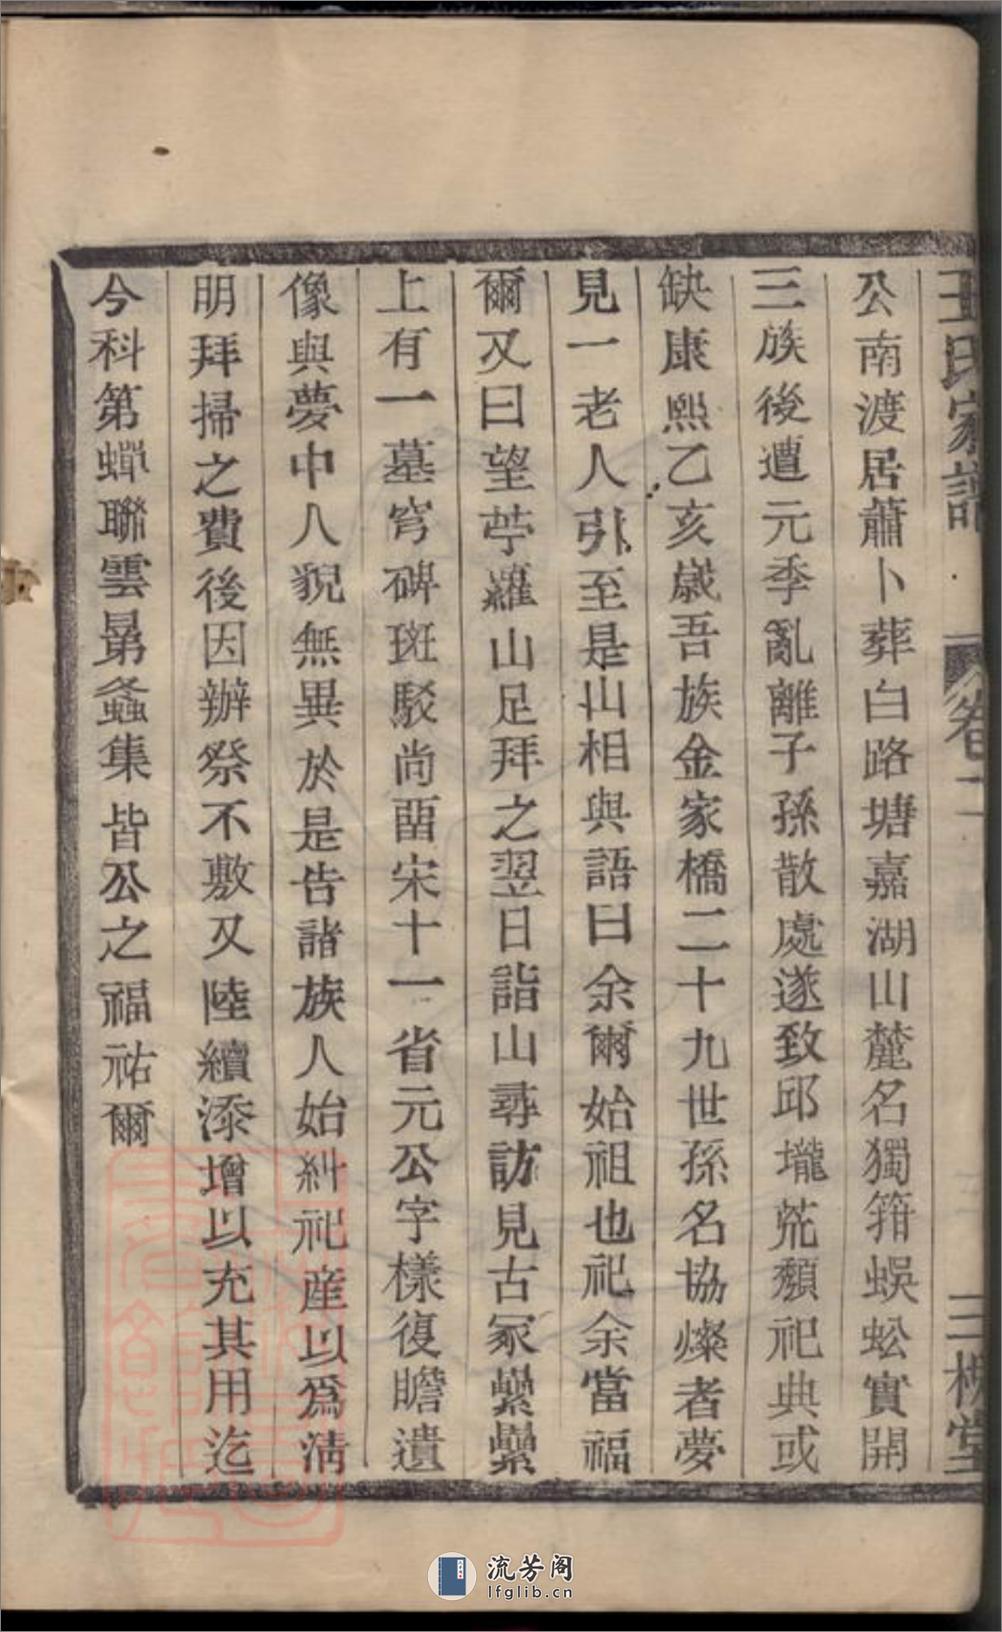 王氏家譜 卷一 三槐堂
公南渡居蕭卜葬白路塘嘉湖山麓名獨箝蜈蚣實開
三族後遭元季亂離子孫散處遂致邱壠荒頽祀典或
缺康熙乙亥歲吾族金家橋二十九世孫名協燦者夢
見一老人引至是山相與語曰余爾始祖也祀余當福
爾又曰望苧蘿山足拜之翌日詣山尋訪見古冢纍纍
上有一墓穹碑斑駁尚畱宋十一省元公字樣復瞻遺
像與夢中人貌無異於是告諸族人始糾祀産以爲淸
明拜掃之費後因辦祭不敷又陸續添增以充其用迄
今科第蟬聯雲曻螽集皆公之福祐爾
流芳阁
lfglib.cn